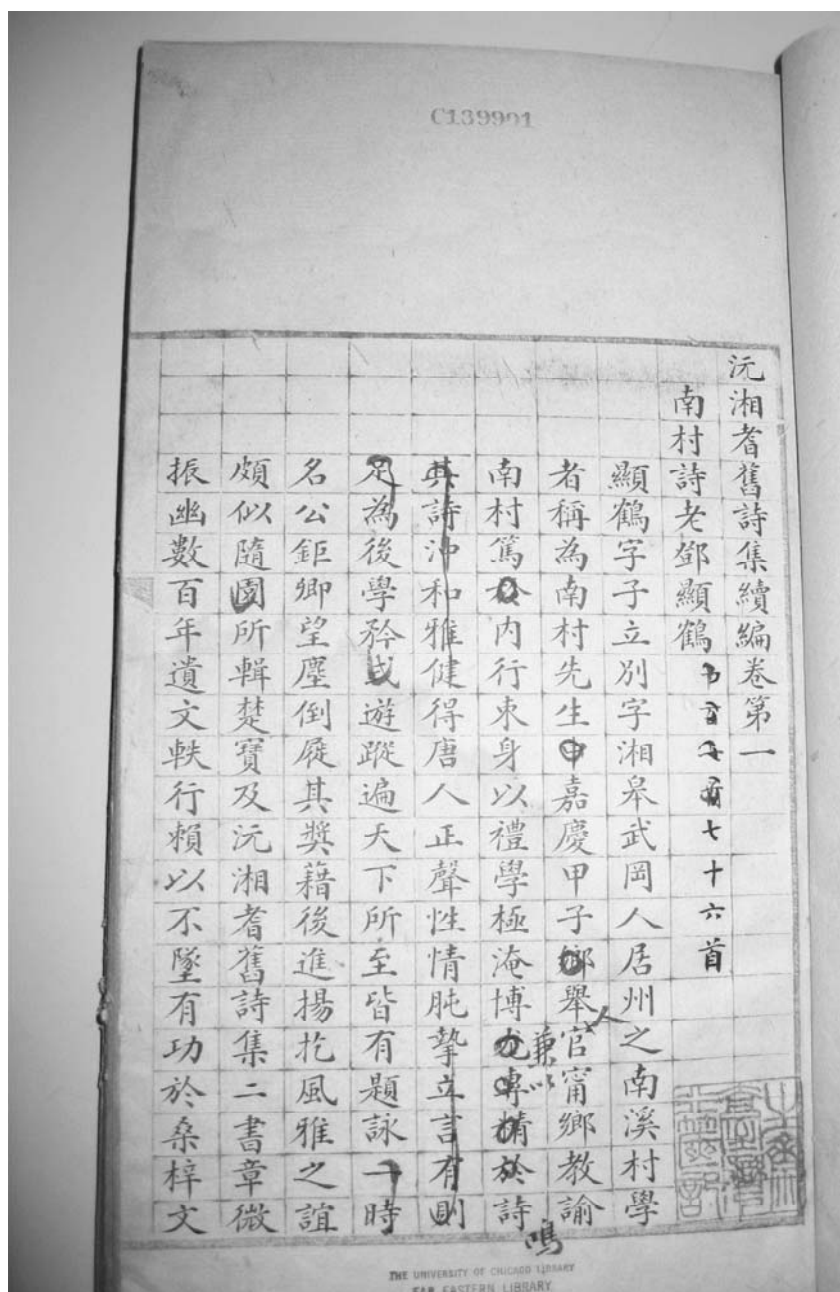 C139901
沅湘耆舊詩集續編卷第一
南村詩老鄧顯鶴七十六首
顯鶴字子立別字湘皋武岡人居州之南溪村學
者稱為南村先生中嘉慶甲子鄉舉人官甯鄉教諭
南村篤於內行束身以禮學極淹博尤專精於詩兼以鳴
其詩沖和雅健得唐人正聲性情肫摯立言有則
足為後學矜式遊蹤遍天下所至皆有題詠一時
名公鉅卿望塵倒屣其獎藉後進揚扢風雅之誼
頗似隨園所輯楚寶及沅湘耆舊詩集二書章微
振幽數百年遺文軼行賴以不墜有功於桑梓文
THE UNIVERSITY OF CHICAGO LIBRARY
FAR EASTERN LIBRARY